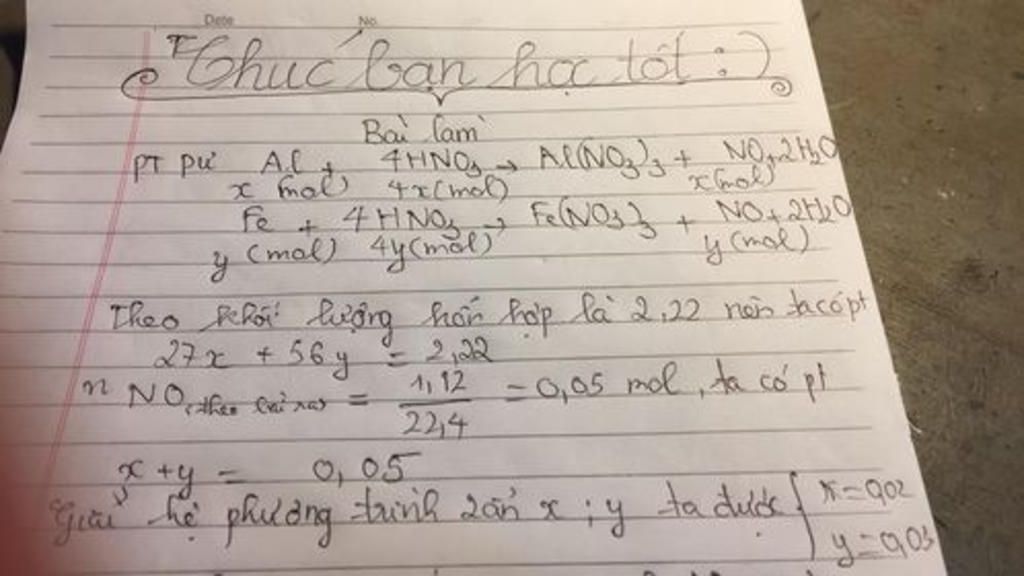 Date No.
Chúc bạn học tốt :)
Bài làm
PT pư Al + 4HNO₃ → Al(NO₃)₃ + NO + 2H₂O
x (mol) 4x (mol) x (mol)
Fe + 4HNO₃ → Fe(NO₃)₃ + NO + 2H₂O
y (mol) 4y (mol) y (mol)
Theo khối lượng hỗn hợp là 2,22 nên ta có pt
27x + 56y = 2,22
n NO (theo bài ra) = 1,12 / 22,4 = 0,05 mol, ta có pt
x + y = 0,05
Giải hệ phương trình 2 ẩn x ; y ta được { x = 0,02
y = 0,03